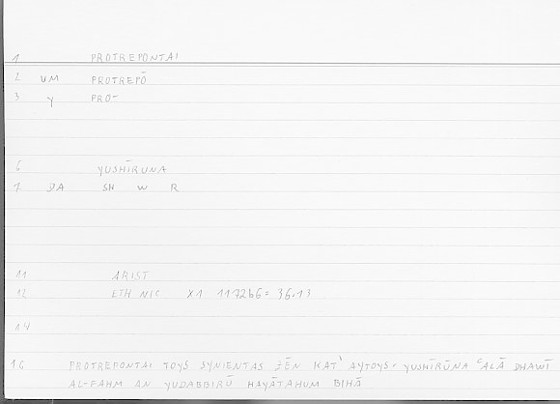 1 PROTREPONTAI
2 UM PROTREPŌ
3 Y PROT
6 YUSHĪRŪNA
7 DA SH W R
11 ARIST
12 ETH NIC X1 1172b6 = 36.13
14
16 PROTREPONTAI TOYS SYNIENTAS ZĒN KAT' AYTOYS, YUSHĪRŪNA ʿALĀ DHAWĪ
AL-FAHM AN YUDABBIRŪ ḤAYĀTAHUM BIHĀ